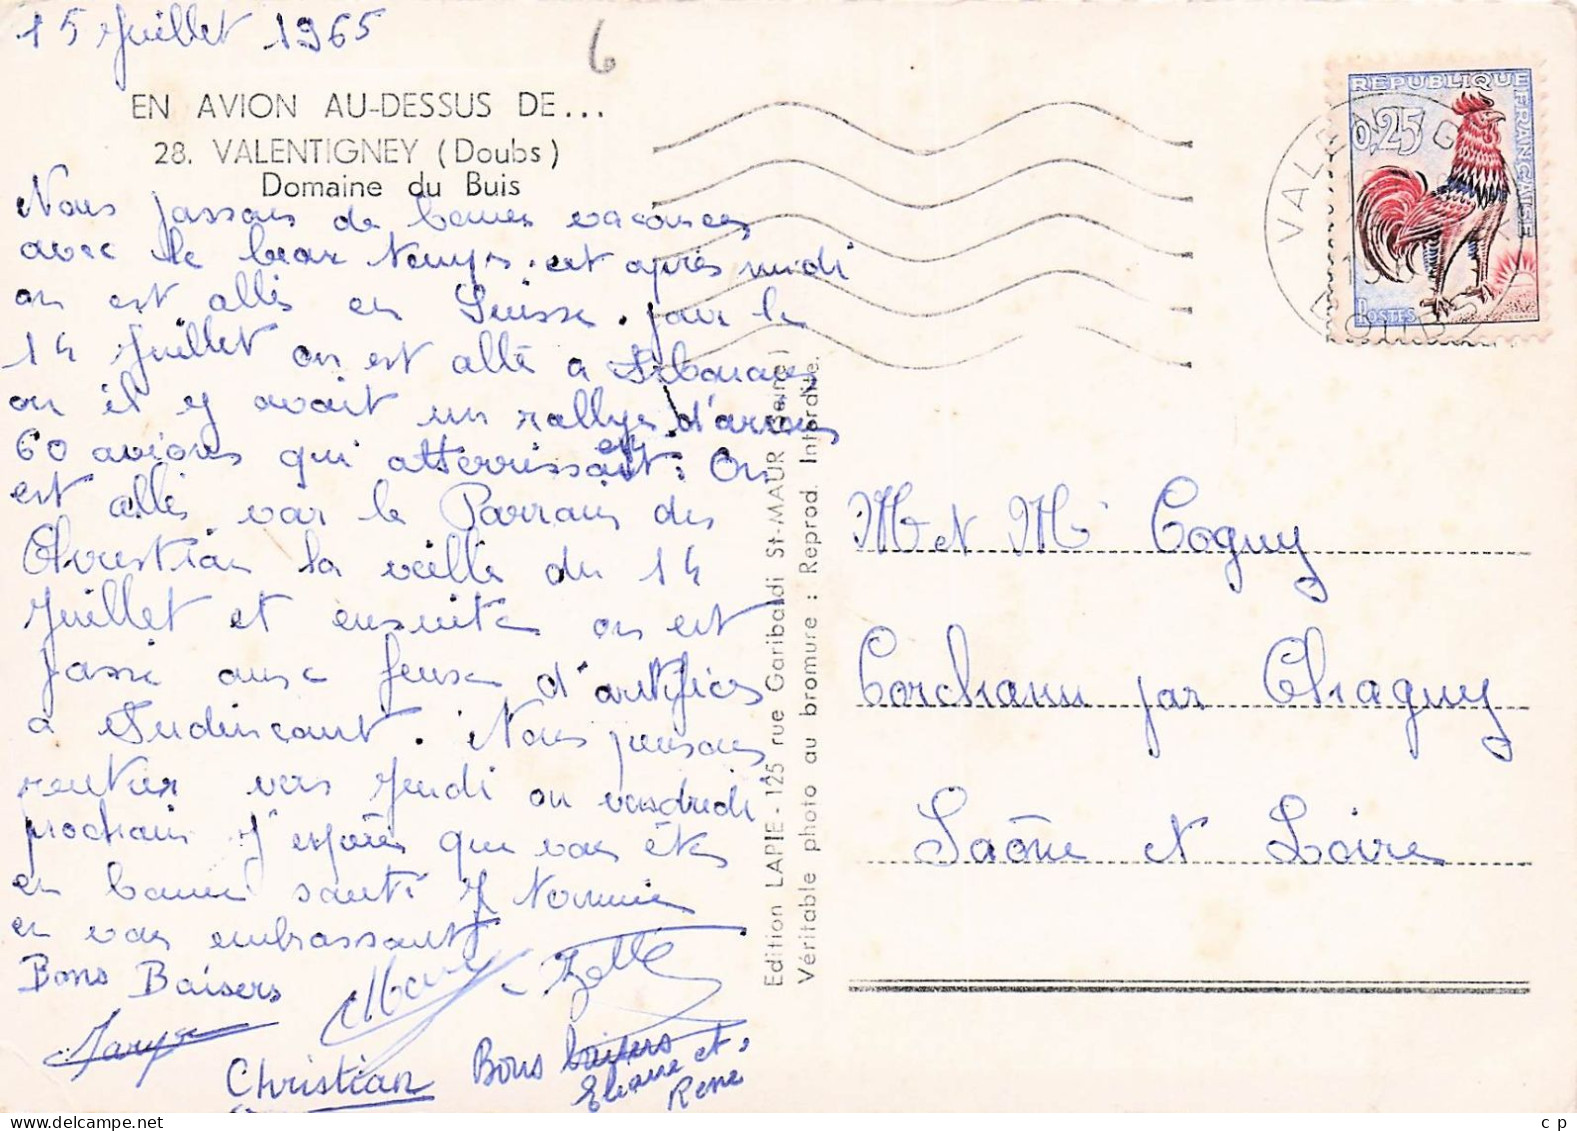 15 Juillet 1965
6
EN AVION AU-DESSUS DE...
28. VALENTIGNEY (Doubs)
Domaine du Buis
Nous passons de bonnes vacances
avec le beau temps. cet après midi
on est allés en Suisse. pour le
14 Juillet on est allé à
ou il y avait un rallye d'avions
60 avions qui atterrissait. On
est allés voir le Parrain des
Christian la veille du 14
Juillet et ensuite on est
passé aux feuse d'artifices
a Audincourt. Nous pensons
rentrer vers Jeudi ou vendredi
prochain J'espère que vous êtes
en bonne santé Je termine
en vous embrassant
Bons Baisers
Christian
Bons baisers
Eliane et
Rene
Edition LAPIE - 125 rue Garibaldi St-MAUR (Seine)
Véritable photo au bromure : Reprod. Interdite.
REPUBLIQUE FRANÇAISE
0,25
POSTES
VALENTIGNEY
DOUBS
M et Me Coguy
Corcheanu par Chaguy
Saône et Loire
c p